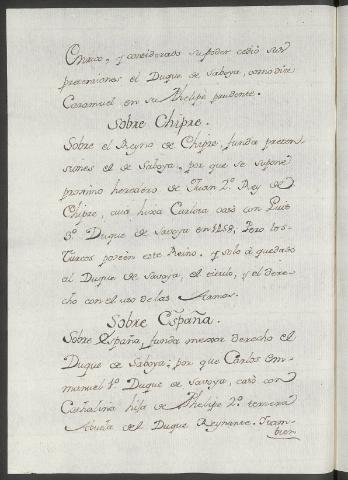 y considerado su poder cedió sus
pretensiones el Duque de Saboya, como dice
Caramuel en su Phelipe prudente.
Sobre Chipre.
Sobre el Reyno de Chipre, funda preten-
siones el de Saboya, por que se supone
proximo heredero de Juan 2º Rey de
Chipre, cuia hixa Carlota casó con Luis
3º Duque de Savoya en 1458, Pero los
Turcos poseen este Reino. y solo á quedado
al Duque de Savoya, el titulo, y el dere-
cho con el uso de las Armas.
Sobre España.
Sobre España, funda mexor derecho el
Duque de Saboya; por que Carlos Em-
manuel 1º Duque de Savoya, casó con
Cathalina hija de Phelipe 2º tercera
Abuela del Duque Reynante. Tam-
bien